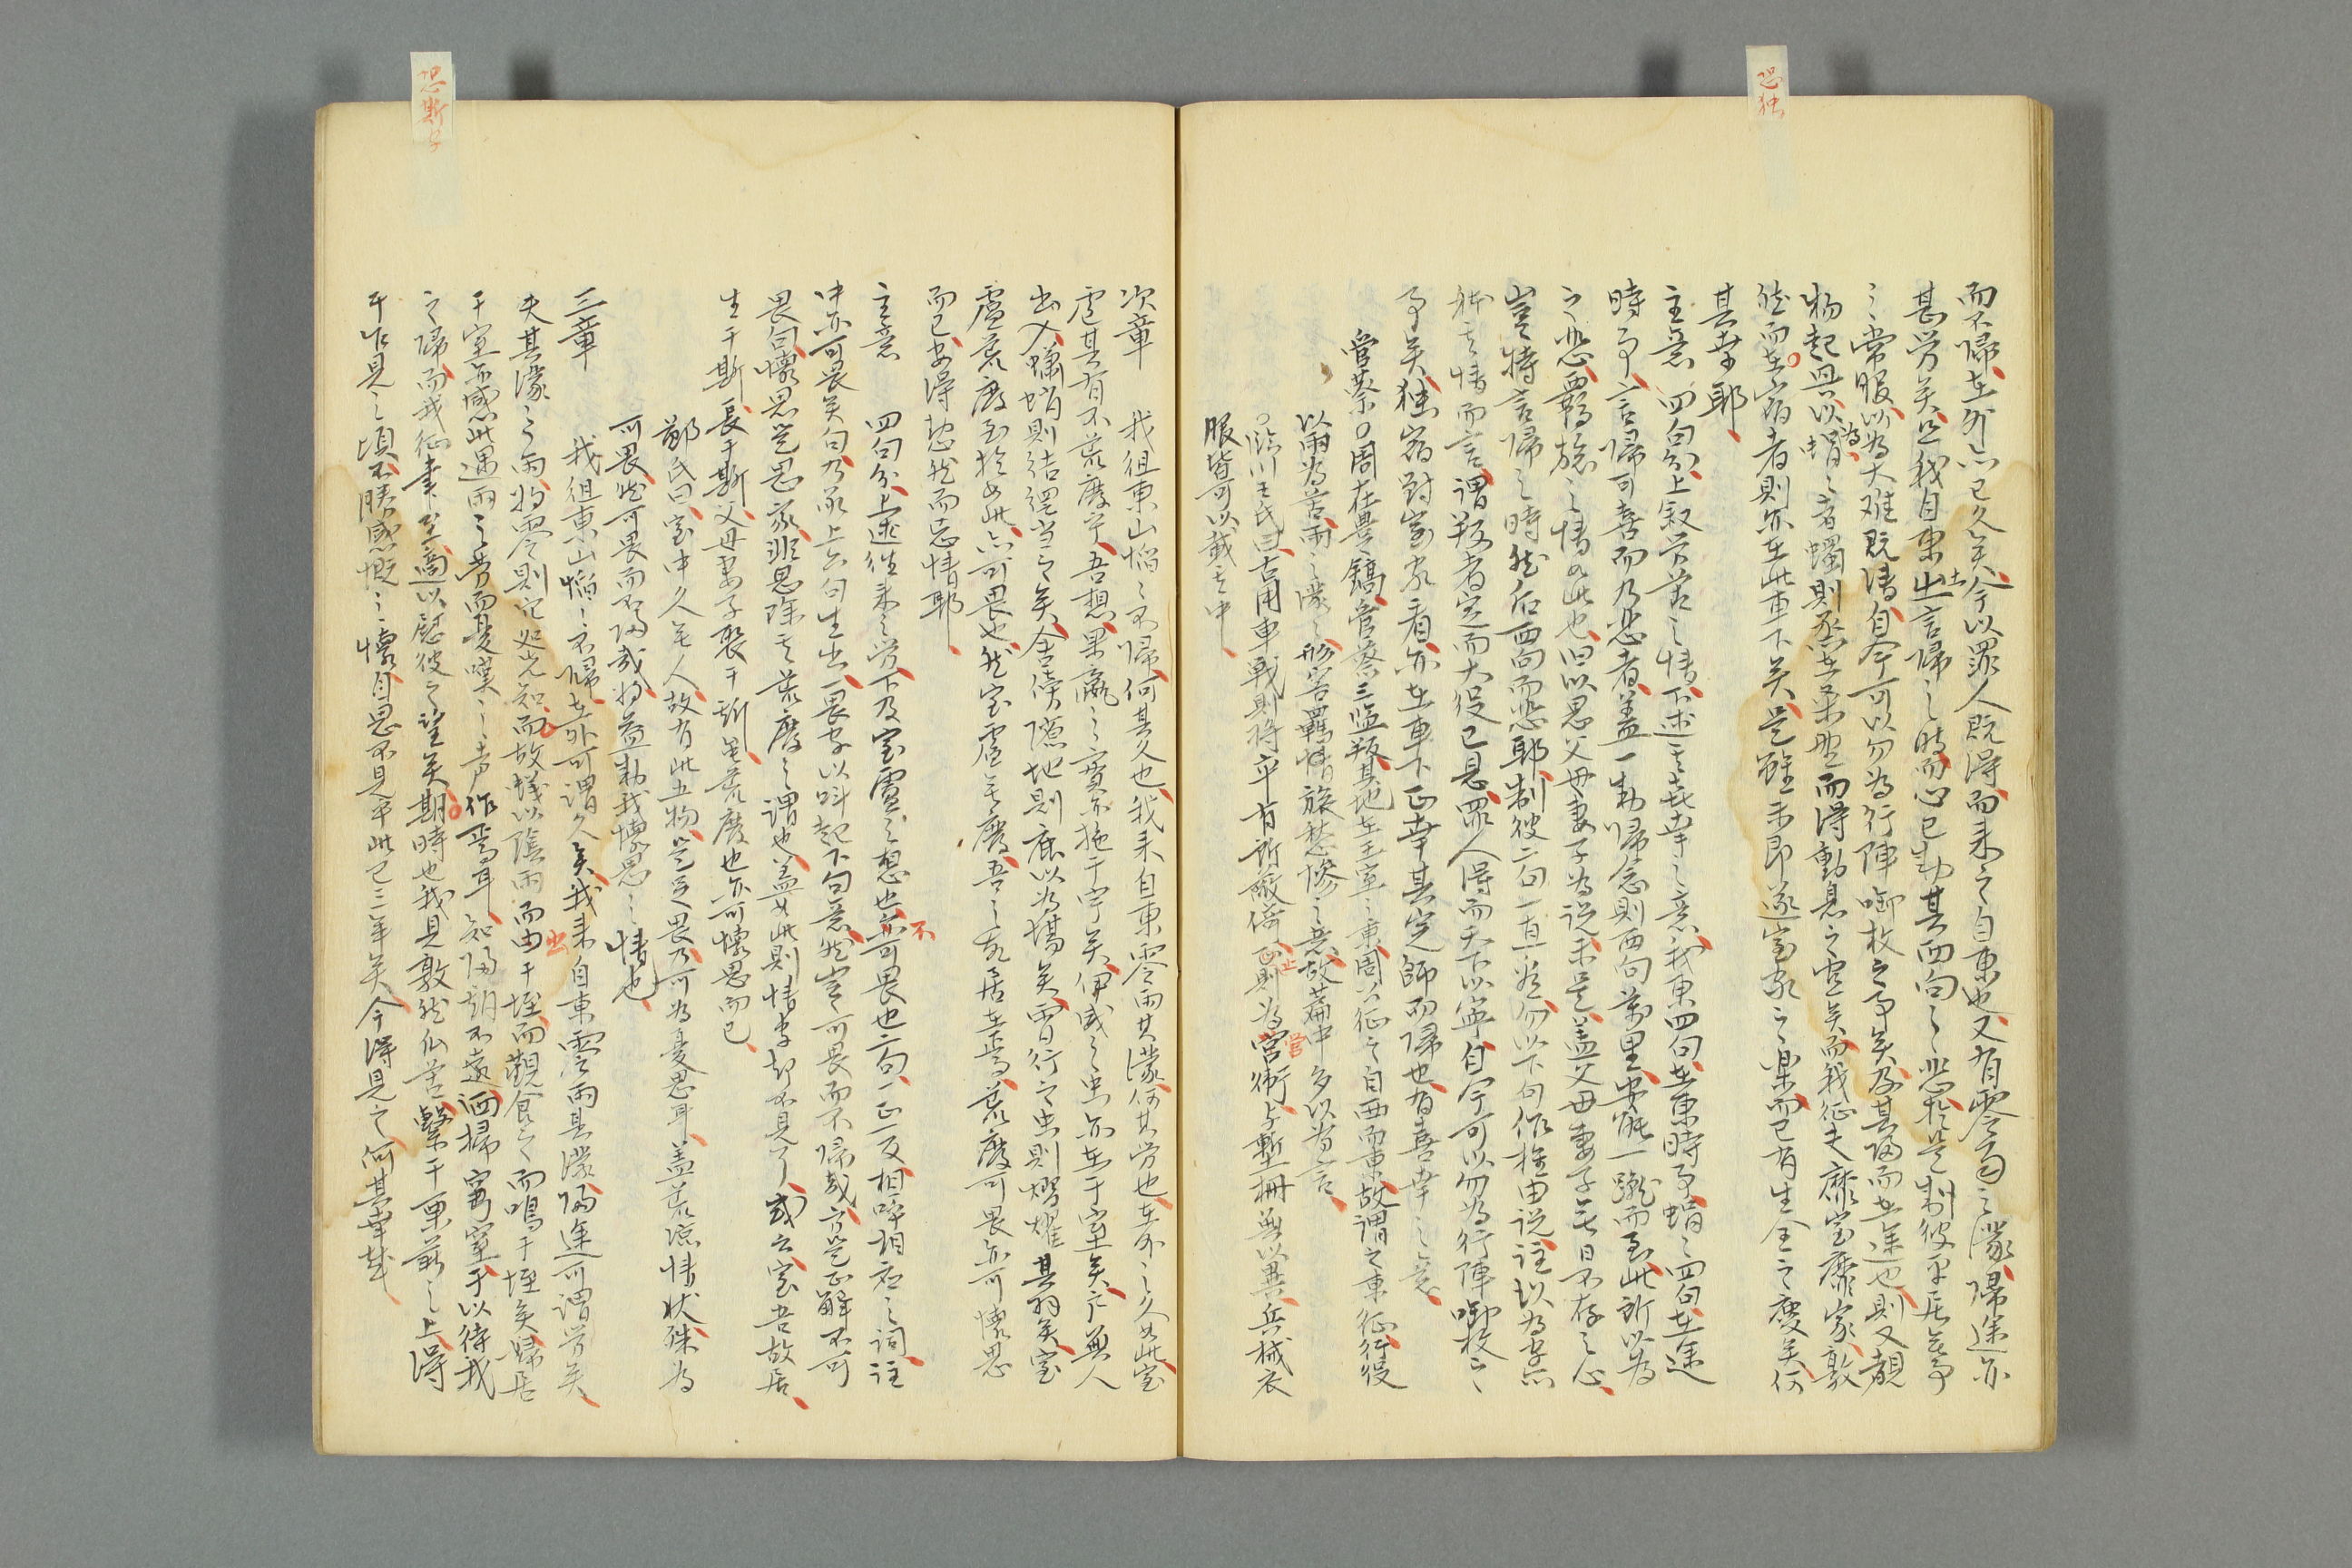 恐独
而不歸在外亦已久矣今以罪人既得而来之自東也又有零雨之濛歸途亦
甚労矣且我自東之言歸之時而心已動其西向之悲於是制彼平居無事
之常服以為大难既清自今可以勿為行陣啣枚之事矣及其归而在途也則又覩
物起興以為蜎之者蠋則烝在桑野而得動息之宜矣而我征夫靡室靡家敦
然而在宿者則亦在此車下矣是雖未即遂室家之楽而已有生全之慶矣何
其幸耶
主意 四句分上叙労苦之情下述喜幸之意我東四句在東時事蜎之四句在途
時事言歸可喜而乃悲者盖一動歸念則西向萬里安能一蹴而至此所以為
之悲羈旅之情如此也旧以思父母妻子為説未是盖父母妻子無日不存之心
豈特言歸之時然后西向而悲耶制彼二句一直若勿以下句作推由説註以為
其情而言謂叛者定而大役已息罪人得而天下以寧自今可以勿為行陣啣枚之
事矣独宿對室家看亦在車下正幸其完師而歸也有喜幸之意
管蔡○周在豊鎬管蔡三監叛其地在王室之東周公征之自西而東故謂之東征行役
以雨為苦雨之濛形容羈情旅愁惨之意故篇中多以為言
○臨川王氏曰古用車戦則将卒有所蔽倚止則為営衛与塹柵無以異兵械衣
服皆可以載其中
次章 我徂東山慆之不歸何其久也我来自東零雨其濛何其労也在外之久如此室
廬其有不荒廢乎吾想果臝之實亦施于宇矣伊威之虫亦在于室矣戸無人
出入蠨蛸則結網当之矣舍傍隙地則鹿以為場矣宵行之虫則熠燿其羽矣室
廬荒廢至於如此亦可畏也然室廬荒廢吾之所居在焉荒廢可畏亦可懐思
而已安得恝然而忘情耶
主意 四句分上述往来之労下及室廬之想也不可畏也二句一正一反相呼相应之詞註
中亦可畏矣句乃承上六句生出一畏字以呌起下句意然豈可畏而不歸哉方是正解不可
畏句懐思是思家非思除其荒廢之謂也盖如此則情字却不見了或云室吾故居
生于斯長于斯父母妻子聚于斯虽荒廢也亦可懐思而已
鄒氏曰室中久无人故有此五物是足畏乃可為憂思耳盖荒凉情状殊為
可畏然可畏而不归哉将益動我懐思之情也
三章 我徂東山慆之不歸在外可謂久矣我来自東零雨其濛归途可謂労矣
夫其濛之之雨将零則穴処先知而故蟻以陰雨而出于垤而觀食之而鳴于垤矣婦居
于室亦感此遇雨之労而憂嘆之声作焉耳知归期不遠洒掃穹窒于以待我
之歸而我征聿至適以慰彼之望矣期時也我見敦然仏苦繫于栗薪之上得
于乍見之頃不勝感慨之懐自思不見乎此已三年矣今得見之何其幸哉
恐斯字